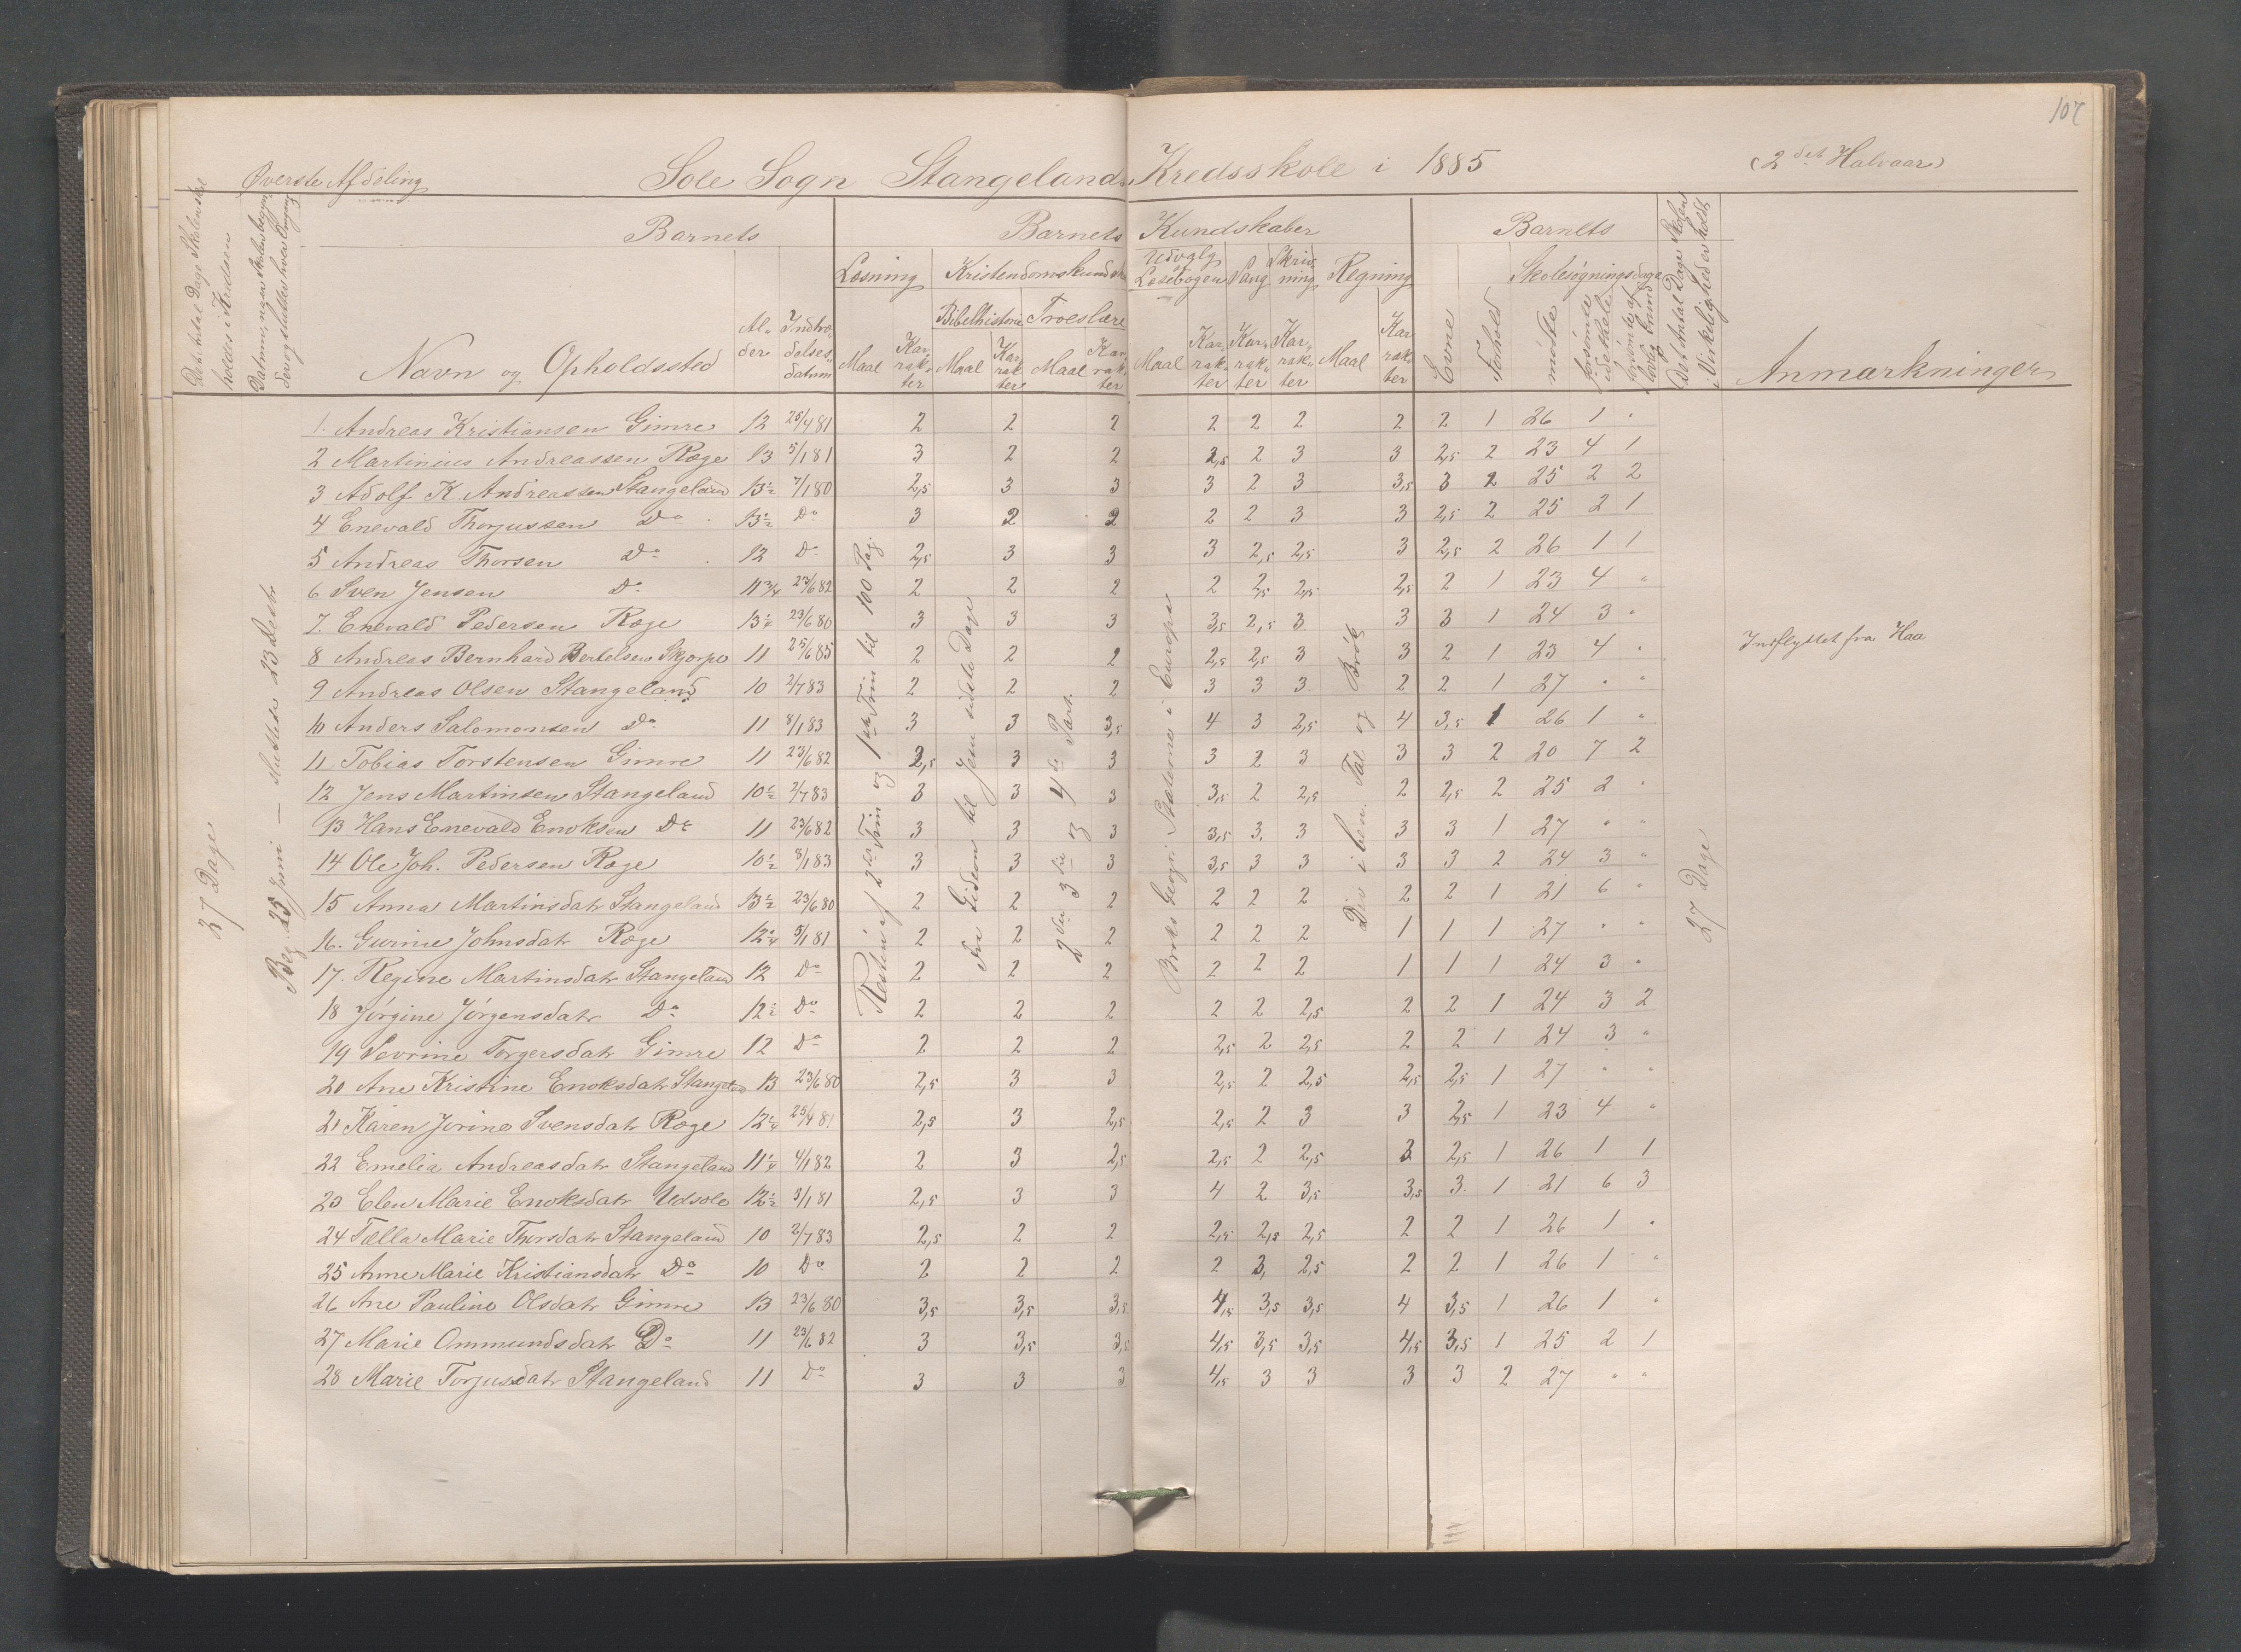 107
Øverste Afdeling Sole Sogn Stangelands Kredsskole i 1885 (2det Halvaar)
Det Antal Dage Skolen skal holdes i Kredsen
Datum, naar Skolen begynder og slutter hver Omgang
Barnets
Barnets Kundskaber
Barnets
Det Antal Dage Skolen i Virkeligheden holdes
Læsning Kristendomskundskab Udvalg Læsebogen Sang Skrivning Regning Skolesøgningsdage
Bibelhistorie Troeslære
Navn og Opholdssted Alder Indtrædelsesdatum Maal Karrakter Maal Karrakter Maal Karrakter Maal Karrakter Karrakter Karrakter Maal Karrakter Evne Forhold mødte forsømte i det hele forsømte af lovlig Grund Anmærkninger
37 Dage
Beg. 25 Juni — sluttede 23 Decbr.
Resten af 2det Trin og 1ste Trin til 100 Pag.
Fra Gideon til Jesu sidste Dage
2den 3die og 4de Part.
Broks Geogr: Staterne i Europa
Div i ben. Tal og Brøk
27 Dage
1. Andreas Kristiansen Gimre 12 25/4 81 2 2 2 2 2 2 2 2 1 26 1 "
2 Martinius Andreassen Røge 13 5/1 81 3 2 2 2,5 2 3 3 2,5 2 23 4 1
3 Adolf K. Andreassen Stangeland 13½ 7/1 80 2,5 3 3 3 2 3 3,5 3 2 25 2 2
4 Enevald Thorjussen Do 13½ Do 3 2 2 2 2 3 3 2,5 2 25 2 1
5 Andreas Thorsen Do 12 Do 2,5 3 3 3 2,5 2,5 3 2,5 2 26 1 1
6 Sven Jensen Do 11¾ 23/6 82 2 2 2 2 2,5 2,5 2,5 2 1 23 4 "
7. Enevald Pedersen Røge 13¼ 23/6 80 3 3 3 3,5 2,5 3 3 3 1 24 3 "
8 Andreas Bernhard Bertelsen Skjorpe 11 25/6 85 2 2 2 2,5 2,5 3 3 2 1 23 4 " Indflyttet fra Haa
9 Andreas Olsen Stangeland 10 2/7 83 2 2 2 3 3 3 2 2 1 27 " "
10 Anders Salomonsen Do 11 8/1 83 3 3 3,5 4 3 2,5 4 3,5 1 26 1 "
11 Tobias Torstensen Gimre 11 23/6 82 2,5 3 3 3 2 3 3 3 2 20 7 2
12 Jens Martinsen Stangeland 10½ 2/7 83 3 3 3 3,5 2 2,5 2 2,5 2 25 2 "
13 Hans Enevald Enoksen Do 11 23/6 82 3 3 3 3,5 3. 3 3 3 1 27 " "
14 Ole Joh. Pedersen Røge 10½ 8/1 83 3 3 3 3,5 3 3 3 3 2 24 3 "
15 Anna Martinsdatr Stangeland 13½ 23/6 80 2 2 2 2 2 2 2 2 1 21 6 "
16. Gurine Johnsdatr Røge 12¼ 5/1 81 2 2 2 2 2 2 1 1 1 27 " "
17. Regine Martinsdatr Stangeland 12 Do 2 2 2 2 2 2 1 1 1 24 3 "
18 Jörgine Jörgensdatr Do 12½ Do 2 2 2 2 2 2,5 2 2 1 24 3 2
19 Sevrine Torgersdatr Gimre 12 Do 2 2 2 2,5 2 2,5 2 2 1 24 3 "
20 Ane Kristine Enoksdatr Stangeland 13 23/6 80 2,5 3 3 2,5 2 2,5 2,5 2,5 1 27 " "
21 Karen Jorine Svensdatr Røge 12¼ 25/4 81 2,5 3 2,5 2,5 2 3 3 2,5 1 23 4 "
22 Emelia Andreasdatr Stangeland 11¼ 4/1 82 2 3 2,5 2,5 2 2,5 2 2,5 1 26 1 1
23 Elen Marie Enoksdatr Udsole 12½ 3/1 81 2,5 3 3 4 2 3,5 3,5 3. 1 21 6 3
24 Tælla Marie Thorsdatr Stangeland 10 2/7 83 2,5 2 2 2,5 2,5 2,5 2 2 1 26 1 "
25 Anne Marie Kristiansdatr Do 10 Do 2 2 2 2 3, 2,5 2 2 1 26 1 "
26 Ane Pauline Olsdatr Gimre 13 23/6 80 3,5 3,5 3,5 4,5 3,5 3,5 4 3,5 1 26 1 "
27 Marie Ommundsdatr Do 11 23/6 82 3 3,5 3,5 4,5 3,5 3,5 4,5 3,5 1 25 2 1
28 Marie Torjusdatr Stangeland 11 Do 3 3 3 4,5 3 3 3 3 2 27 " "